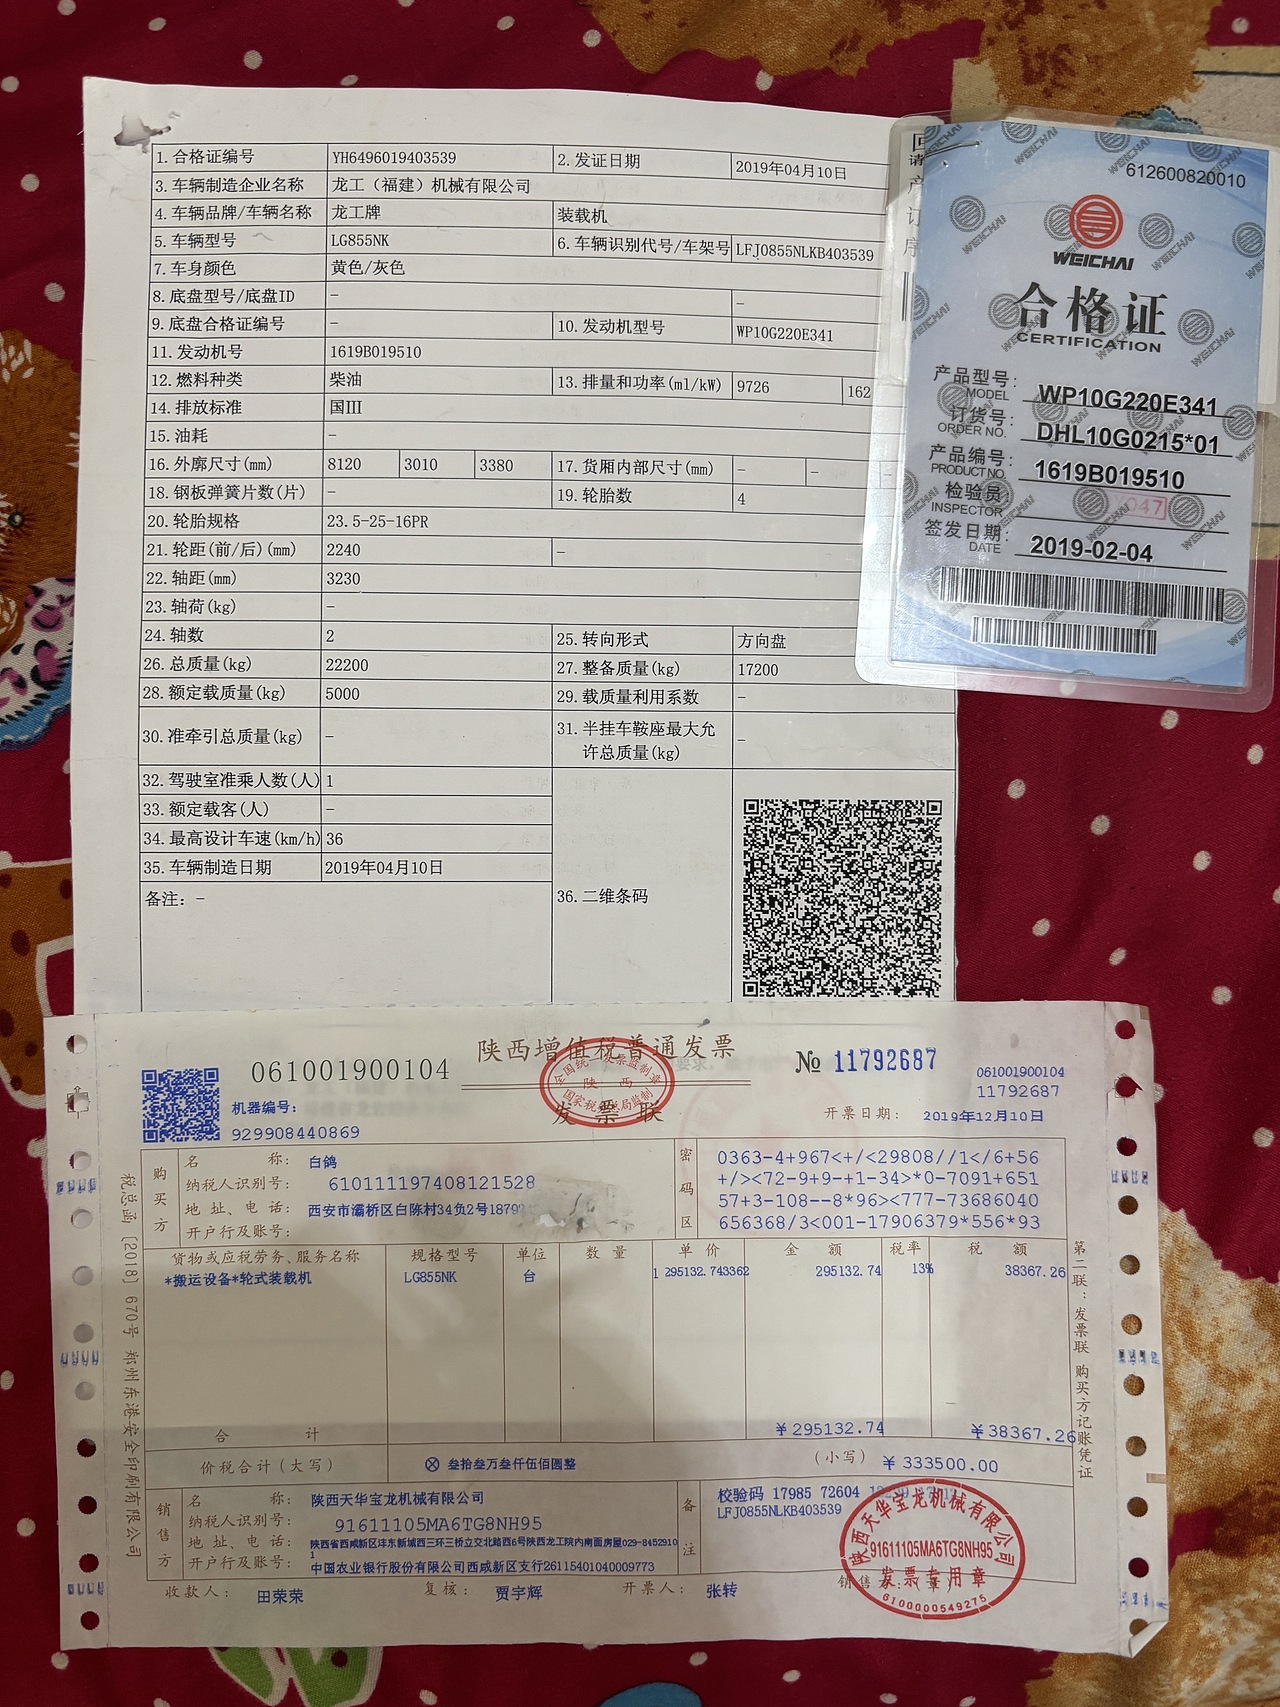 1.合格证编号 YH6496019403539 2.发证日期 2019年04月10日
3.车辆制造企业名称 龙工（福建）机械有限公司
4.车辆品牌/车辆名称 龙工牌 装载机
5.车辆型号 LG855NK 6.车辆识别代号/车架号 LFJ0855NLKB403539
7.车身颜色 黄色/灰色
8.底盘型号/底盘ID - -
9.底盘合格证编号 - 10.发动机型号 WP10G220E341
11.发动机号 1619B019510
12.燃料种类 柴油 13.排量和功率(ml/kW) 9726 162
14.排放标准 国III
15.油耗 -
16.外廓尺寸(mm) 8120 3010 3380 17.货厢内部尺寸(mm) - - -
18.钢板弹簧片数(片) - 19.轮胎数 4
20.轮胎规格 23.5-25-16PR
21.轮距(前/后)(mm) 2240 -
22.轴距(mm) 3230
23.轴荷(kg) -
24.轴数 2 25.转向形式 方向盘
26.总质量(kg) 22200 27.整备质量(kg) 17200
28.额定载质量(kg) 5000 29.载质量利用系数 -
30.准牵引总质量(kg) - 31.半挂车鞍座最大允
许总质量(kg) -
32.驾驶室准乘人数(人) 1
33.额定载客(人) -
34.最高设计车速(km/h) 36
35.车辆制造日期 2019年04月10日
备注：- 36.二维条码
612600820010
WEICHAI
合格证
CERTIFICATION
产品型号：
MODEL WP10G220E341
订货号：
ORDER NO. DHL10G0215*01
产品编号：
PRODUCT NO. 1619B019510
检验员：
INSPECTOR 047
签发日期：
DATE 2019-02-04
061001900104 陕西增值税普通发票 № 11792687
061001900104
11792687
全国统一发票监制章
陕西
国家税务总局监制
发票联
机器编号：
929908440869
开票日期： 2019年12月10日
购买方
名称： 白鸽
纳税人识别号： 610111197408121528
地址、电话： 西安市灞桥区白陈村34负2号1879
开户行及账号：
密码区
0363-4+967<+/<29808//1</6+56
+/><72-9+9-+1-34>*0-7091+651
57+3-108--8*96><777-73686040
656368/3<001-17906379*556*93
货物或应税劳务、服务名称 规格型号 单位 数量 单价 金额 税率 税额
*搬运设备*轮式装载机 LG855NK 台 1 295132.743362 295132.74 13% 38367.26
合计 ￥295132.74 ￥38367.26
价税合计（大写） ⊗ 叁拾叁万叁仟伍佰圆整 （小写） ￥333500.00
销售方
名称： 陕西天华宝龙机械有限公司
纳税人识别号： 91611105MA6TG8NH95
地址、电话： 陕西省西咸新区沣东新城西三环三桥立交北路西6号陕西龙工院内南面房屋029-8452910
1
开户行及账号： 中国农业银行股份有限公司西咸新区支行26115401040009773
备注
校验码 17985 72604
LFJ0855NLKB403539
陕西天华宝龙机械有限公司
91611105MA6TG8NH95
发票专用章
6100000549275
收款人： 田荣荣 复核： 贾宇辉 开票人： 张转
税总函〔2018〕670号 郑州东港安全印刷有限公司
第二联：发票联 购买方记账凭证